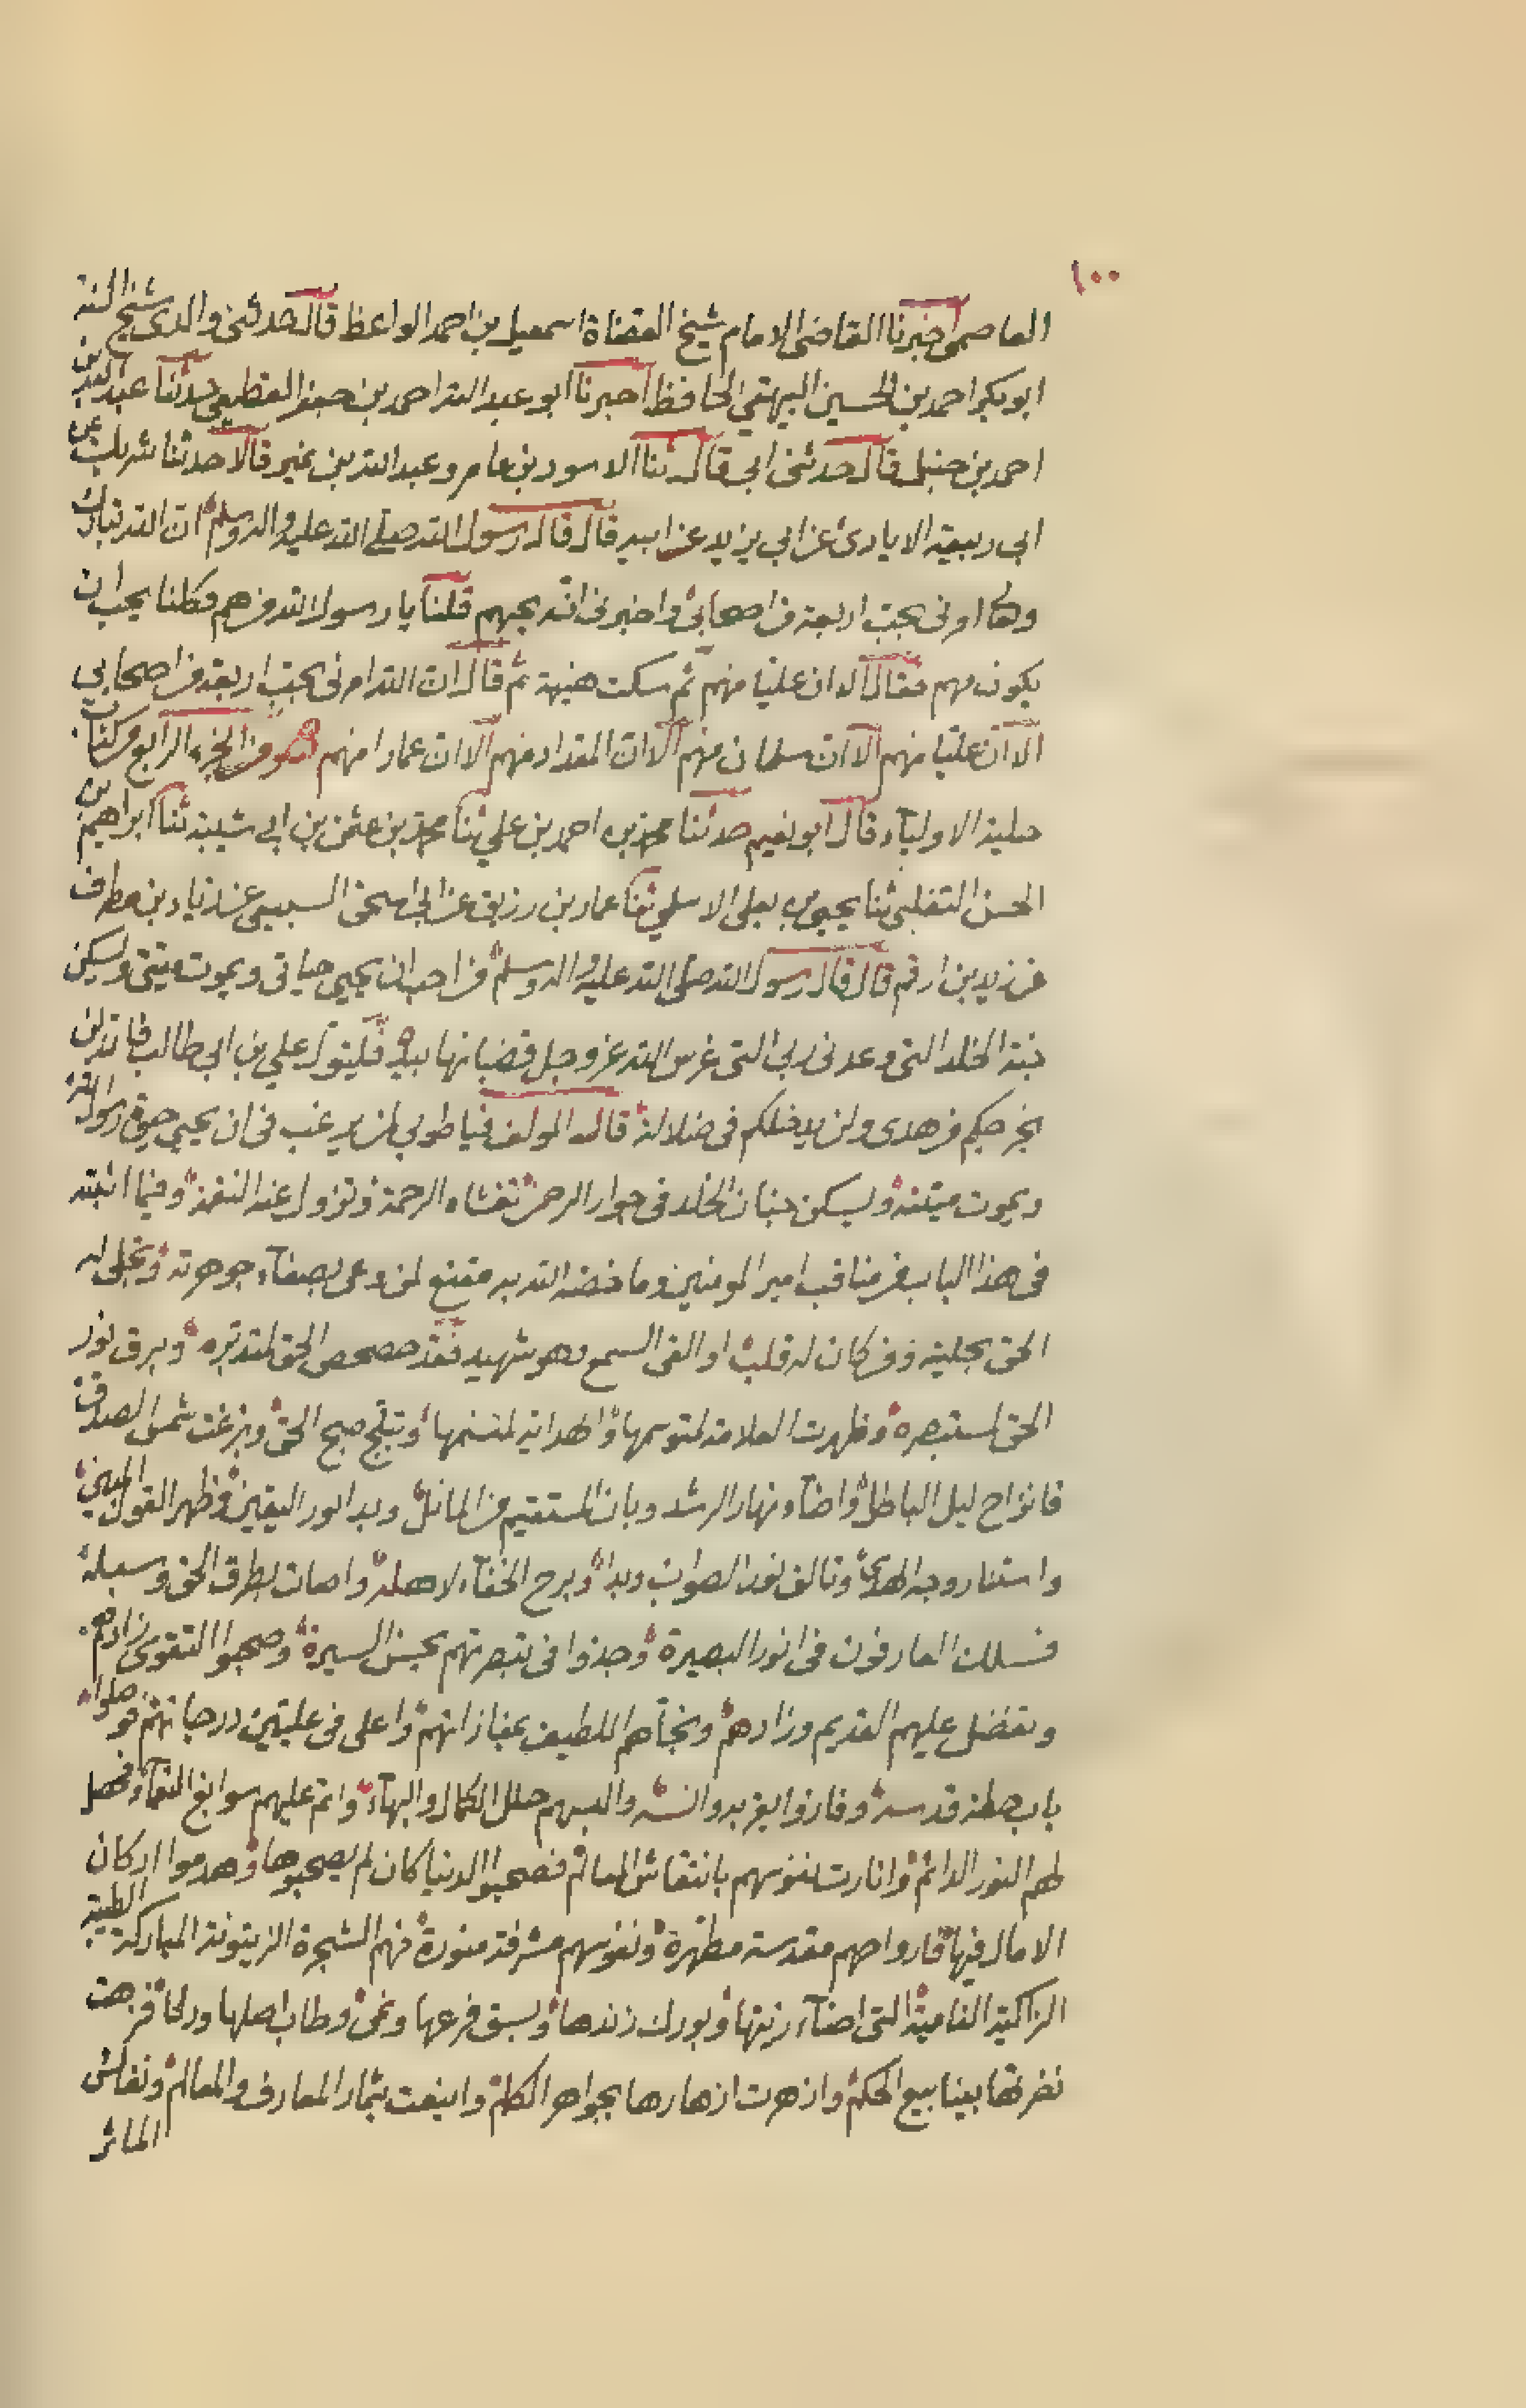 ١٠٠
العاصمى اخبرنا القاضى الامام شيخ القضاة اسمعيل بن احمد الواعظ قال حدثنى والدى شيخ السنة
ابو بكر احمد بن الحسين البيهقى الحافظ اخبرنا ابو عبد الله احمد بن جعفر القطيعى حدثنا عبد الله بن
احمد بن حنبل قال حدثنى ابى قال ثنا الاسود بن عامر وعبد الله بن نمير قالا حدثنا شريك عن
ابى ربيعة الايادى عن ابى بريد عن ابيه قال قال رسول الله صلى الله عليه واله وسلم ان الله تبارك
وتعا امرنى بحب اربعة من اصحابى واخبرنى انه يحبهم قلنا يا رسول الله من هم فكلنا يحب ان
يكون منهم فقال الا ان عليا منهم ثم سكت هنيهة ثم قال ان الله امرنى بحب اربعة من اصحابي
الا ان عليا منهم الا ان سلمان منهم الا ان المقداد منهم الا ان عمارا منهم ومن الجزء الرابع من كتاب
حلية الاولياء قال ابو نعيم حدثنا محمد بن احمد بن علي ثنا محمد بن عثمن بن ابي شيبة ثنا ابراهيم بن
الحسن التغلبى ثنا يحيى بن يعلى الاسلمي ثنا عمار بن رزيق عن ابى اسحق السبيعى عن زياد بن مطرف
عن زيد بن ارقم قال قال رسول الله صلى الله عليه واله وسلم من احب ان يحيى حياتى ويموت ميتتى ويسكن
جنة الخلد التى وعدنى ربى التى غرس الله عز وجل قضبانها بيده فليتول علي بن ابى طالب فانه لن
يخرجكم من هدى ولن يدخلكم فى ضلالة قال المولف فيا طوبى لمن يرغب فى ان يحيى حيوة رسول الله
ويموت ميتته وليسكن جنان الخلد فى جوار الرحمن تغشاه الرحمة وتزول عنه النقمة وفيما اثبته
فى هذا الباب من مناقب امير المومنين وما خصه الله به مقنع لمن وعى بصفاء جوهرته وتجلى له
الحق بجليته ومن كان له قلب او القى السمع وهو شهيد فقد حصحص الحق لمتدبره وبرق نور
الحق لمستبصره وظهرت العلامة لمتوسمها والهداية لمتسنمها وتبلج صبح الحق وبزغت شمس الصدق
فانزاح ليل الباطل واضاء نهار الرشد وبان المستقيم من المائل وبدا نور اليقين وظهر القول المبين
واستنار وجه الهدى وتالق نور الصواب وبدا وبرح الخفاء لاهله واصات لطرق الحق وسبله
فسلك العارفون فى انور البصيرة وجذوا فى تبصرتهم بحسن السيرة وصحبوا التقوى زادهم
وتفضل عليهم القديم وزادهم ونجاهم اللطيف بمفازاتهم واعلى فى عليين درجاتهم فوصلوا
باب حطة قدسه وفازوا بقربه وانسه والبسهم حلل الكمال والبهاء واتم عليهم سوابغ النعماء فحصل
لهم النور الدائم وانارت نفوسهم بانتقاش المعالم فصحبوا الدنيا كان لم يصحبوها وهدموا اركان
الامال فيها فارواحهم مقدسة مطهرة ونفوسهم مشرفة منورة فهم الشجرة الزيتونة المباركة الطيبة
الزاكية النامية التى اضاء زيتها وبورك زندها وبسق فرعها ونمى وطاب اصلها
بينابيع الحكم وازهرت ازهارها بجواهر الكلم واينعت بثمار المعارف والمعالم ونفائس
الماثر